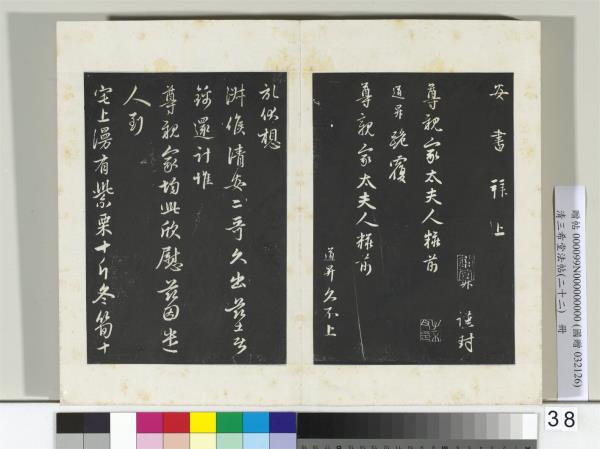 安書拜上
尊親家太夫人粧前
道昇跪覆
尊親家太夫人粧前
謹封
道昇久不上
於伏想
淑候清安二哥久出茲
歸還計惟
尊親家均此欣慰茲因
人到
宅上漫有紫栗十斤冬筍十
贈帖 000099N000000000 (圖贈 032126)
清三希堂法帖(二十二) 冊
38